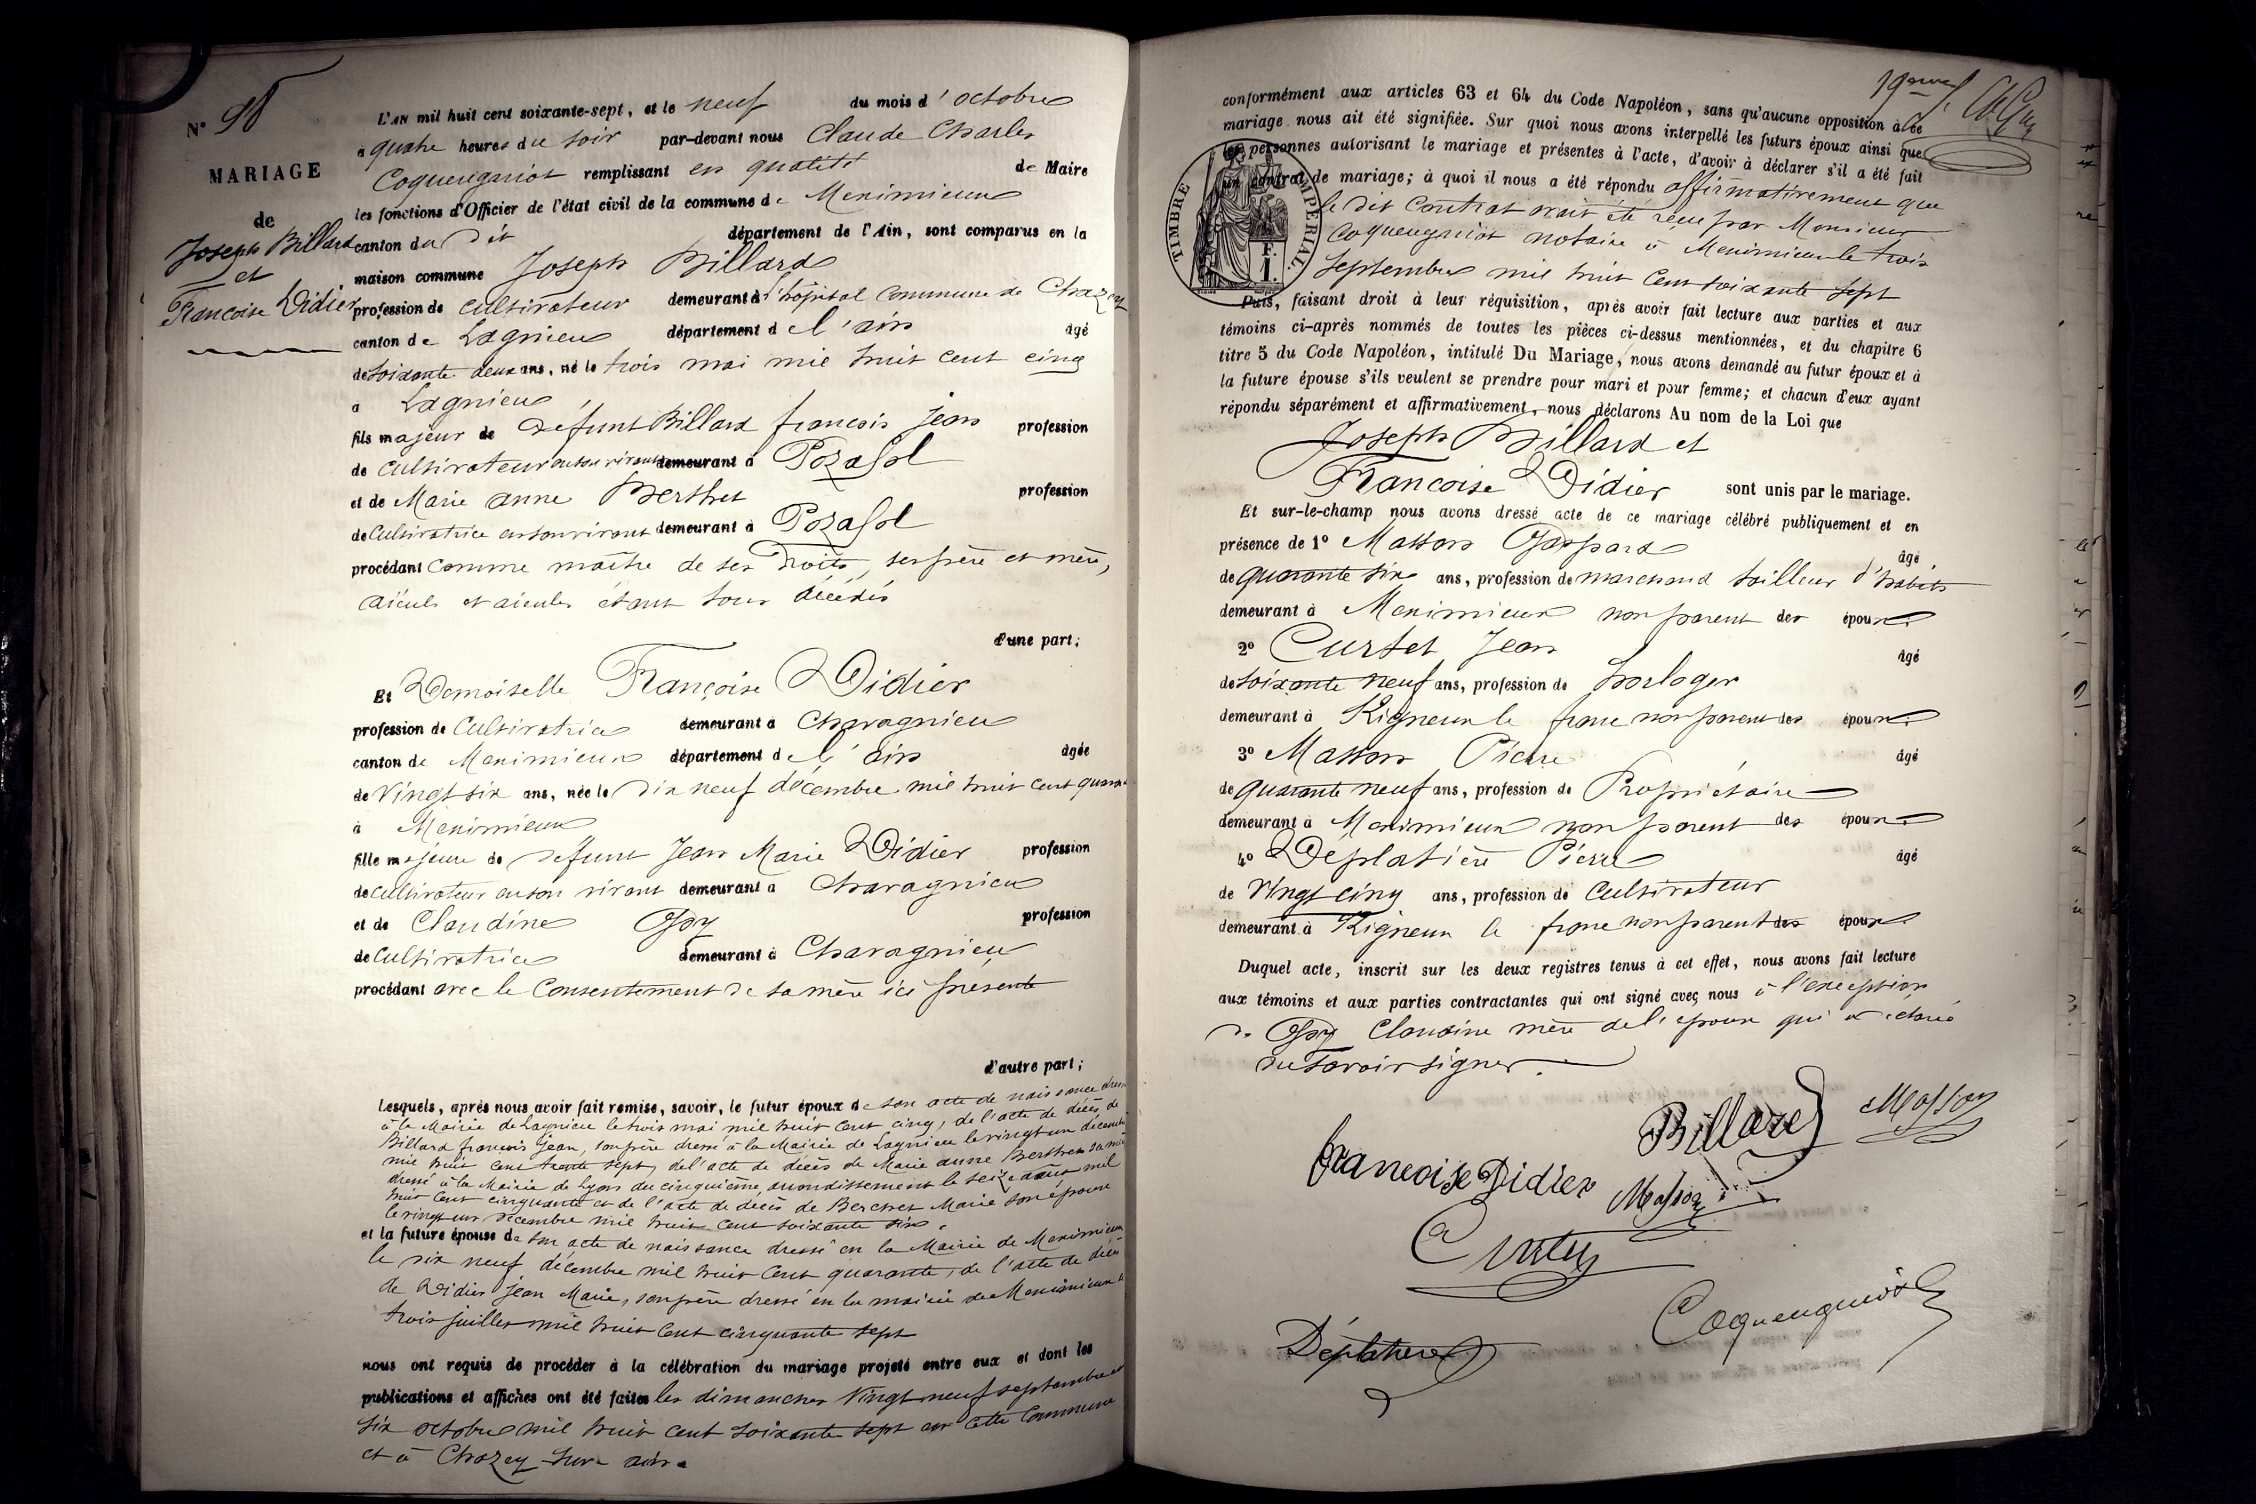 N° 98
MARIAGE
de
Joseph Billard
et
Francoise Didier
L'AN mil huit cent soixante-sept, et le neuf du mois d'octobre
a quatre heures du soir par-devant nous Claude Charles
Coqueugniot remplissant en qualité de Maire
les fonctions d'Officier de l'état civil de la commune de Meximieux
canton du dit département de l'Ain, sont comparus en la
maison commune Joseph Billard
profession de cultivateur demeurant à l'hôpital commune de Chazey
canton de Lagnieu département de l'ain âgé
de soixante deux ans, né le trois mai mil huit cent cinq
a Lagnieu
fils majeur de défunt Billard francois jean profession
de cultivateur en son vivant demeurant à Pozafol
et de Marie anne Berthet profession
de Cultivatrice en son vivant demeurant à Pozafol
procédant comme maître de ses droits, ses père et mère,
aïeuls et aieules étant tous décédés
d'une part;
Et Demoiselle Françoise Didier
profession de Cultivatrice demeurant a Charagnieu
canton de Meximieux département de l'ain âgée
de Vingt six ans, née le dix neuf décembre mil huit cent quarante
à Meximieux
fille majeure de defunt Jean Marie Didier profession
de cultivateur en son vivant demeurant a Charagnieu
et de Claudine Gry profession
de Cultivatrice demeurant à Charagnieu
procédant avec le Consentement de sa mère ici présente
d'autre part;
Lesquels, après nous avoir fait remise, savoir, le futur époux de son acte de naissance dressé
à la Mairie de Lagnieu le trois mai mil huit cent cinq, de l'acte de décès de
Billard francois jean, son père dressé à la Mairie de Lagnieu le vingt un décembre
mil huit cent trente sept, de l'acte de décès de Marie anne Berthet sa mère
dressé à la Mairie de Lyon du cinquième arrondissement le seize août mil
huit cent cinquante et de l'acte de décès de Berchet Marie son épouse
le vingt un décembre mil huit cent soixante six.
et la future épouse de son acte de naissance dressé en la Mairie de Meximieux
le dix neuf décembre mil huit cent quarante, de l'acte de décès
de Didier jean Marie, son père dressé en la mairie de Meximieux le
trois juillet mil huit cent cinquante sept
nous ont requis de procéder à la célébration du mariage projeté entre eux et dont les
publications et affiches ont été faites les dimanches Vingt neuf septembre et
six octobre mil huit cent soixante sept en cette Commune
et à Chazey sur ain.
conformément aux articles 63 et 64 du Code Napoléon, sans qu'aucune opposition à ce
mariage nous ait été signifiée. Sur quoi nous avons interpellé les futurs époux ainsi que
les personnes autorisant le mariage et présentes à l'acte, d'avoir à déclarer s'il a été fait
un contrat de mariage; à quoi il nous a été répondu affirmativement que
le dit Contrat avait été reçu par Monsieur
Coqueugniot notaire à Meximieux le trois
Septembre mil huit Cent soixante sept
TIMBRE IMPÉRIAL
F.
1.
Puis, faisant droit à leur réquisition, après avoir fait lecture aux parties et aux
témoins ci-après nommés de toutes les pièces ci-dessus mentionnées, et du chapitre 6
titre 5 du Code Napoléon, intitulé Du Mariage, nous avons demandé au futur époux et à
la future épouse s'ils veulent se prendre pour mari et pour femme; et chacun d'eux ayant
répondu séparément et affirmativement, nous déclarons Au nom de la Loi que
Joseph Billard et
Francoise Didier sont unis par le mariage.
Et sur-le-champ nous avons dressé acte de ce mariage célébré publiquement et en
présence de 1° Masson Gaspard âgé
de quarante six ans, profession de marchand tailleur d'habits
demeurant à Meximieux non parent des époux.
2° Curtet Jean âgé
de soixante neuf ans, profession de horloger
demeurant à Rigneux le franc non parent des époux.
3° Masson Pierre âgé
de quarante neuf ans, profession de Propriétaire
demeurant à Meximieux non parent des époux.
4° Déplatière Pierre âgé
de Vingt cinq ans, profession de Cultivateur
demeurant à Rigneux le franc non parent des époux.
Duquel acte, inscrit sur les deux registres tenus à cet effet, nous avons fait lecture
aux témoins et aux parties contractantes qui ont signé avec nous à l'exception
de Gry Claudine mère de l'epoux qui a déclaré
ne savoir signer.
Billard
Masson
francoise Didier
Masson
Curtet
Coqueugniot
Déplatiere